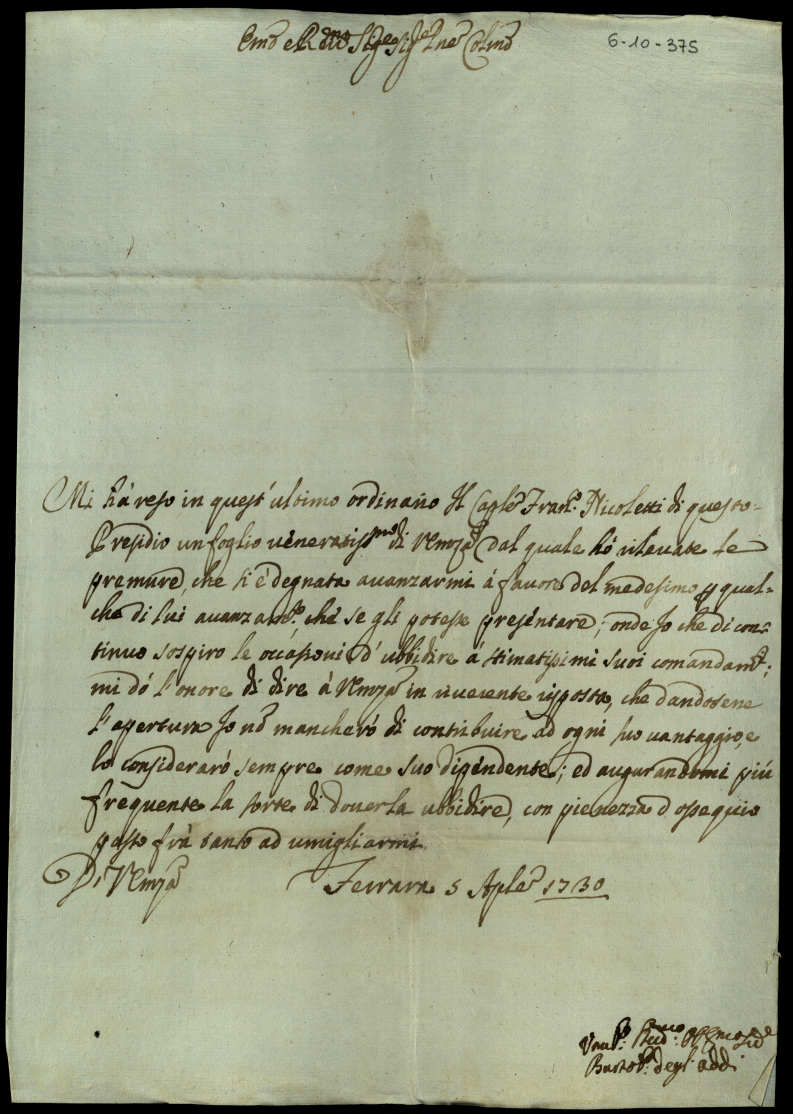 Emo e Rdmo Sigre Sigre Pne Colmo
6-10-375
Mi há reso in quest' ultimo ordinario Il Caple Franc. Nicoletti di questo
Presidio un foglio veneratissmo di Vemza dal quale hó rilevate le
premure, che si é degnata avanzarmi á favore del medesimo p qual=
che di lui avanzamto, che se gli potesse presentare; onde Io che di con=
tinuo sospiro le occasioni d' ubbidire á stimatissimi suoi comandamti;
mi dó l'onore di dire á Vemza in riverente risposta, che dandosene
l'apertura Io no mancheró di contribuire ad ogni suo vantaggio, e
lo consideraró sempre come suo dipendente; ed augurandomi piú
frequente la sorte di doverla ubbidire, con pienezza d'ossequio
passo frá tanto ad umigliarmi
Di Vemza Ferrara 5 Aple 1730
Bartol. degl' Oddi